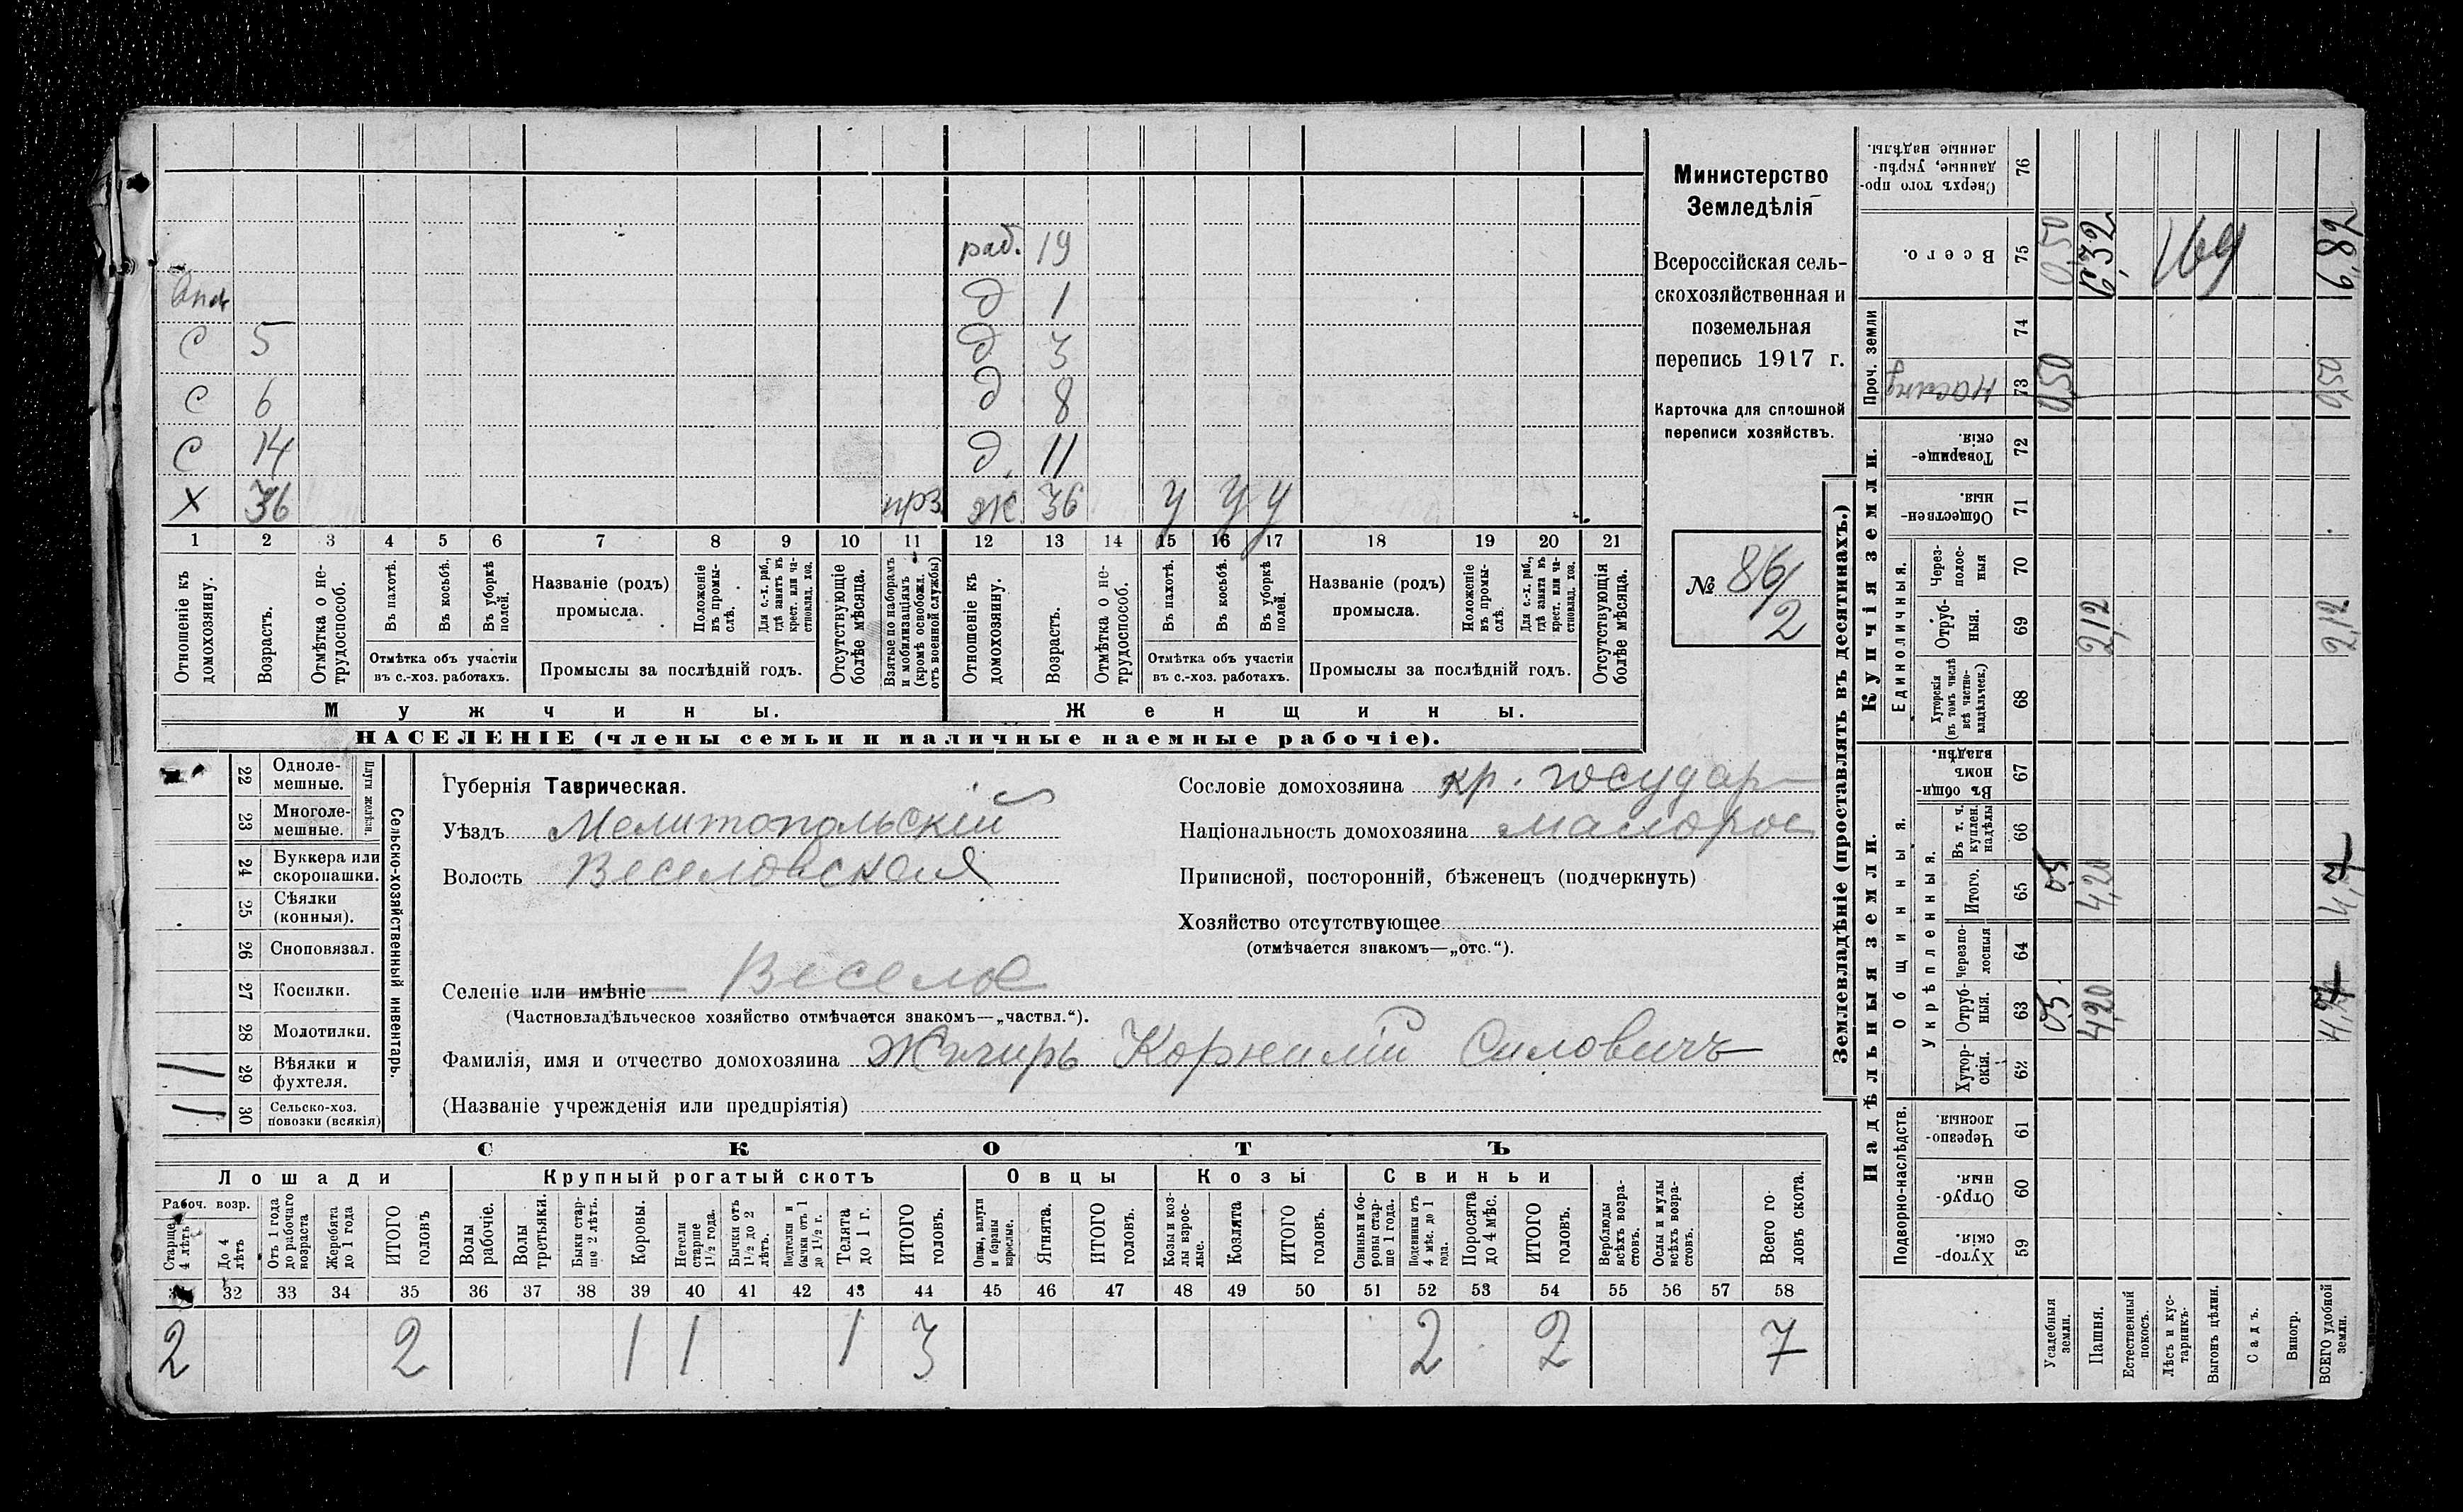 раб. 19
д 1
С 5 д 3
С 6 д 8
С 14 д. 11
Х 36 прз ж 36 у у у
1 2 3 4 5 6 7 8 9 10 11 12 13 14 15 16 17 18 19 20 21
Отношеніе къ домохозяину.
Возрастъ.
Отмѣтка о не-трудоспособ.
Въ пахотѣ.
Въ косьбѣ.
Въ уборкѣ полей.
Отмѣтка объ участіи
въ с.-хоз. работахъ.
Названіе (родъ)
промысла.
Положеніе въ промы-слѣ.
Для с.-х. раб., гдѣ занятъ въ крест. или ча-стновлад. хоз.
Промыслы за послѣдній годъ.
Отсутствующіе болѣе мѣсяца.
Взятые по наборамъ и мобилизаціямъ (кромѣ освобожд. отъ военной службы)
Отношеніе къ домохозяину.
Возрастъ.
Отмѣтка о не-трудоспособ.
Въ пахотѣ.
Въ косьбѣ.
Въ уборкѣ полей.
Отмѣтка объ участіи
въ с.-хоз. работахъ.
Названіе (родъ)
промысла.
Положеніе въ промы-слѣ.
Для с.-х. раб., гдѣ занята въ крест. или ча-стновлад. хоз.
Промыслы за послѣдній годъ.
Отсутствующія болѣе мѣсяца.
Мужчины. Женщины.
НАСЕЛЕНІЕ (члены семьи и наличные наемные рабочіе).
Министерство
Земледѣлія
Всероссійская сель-
скохозяйственная и
поземельная
перепись 1917 г.
Карточка для сплошной
переписи хозяйствъ.
№ 86/2
22 Одноле-мешные.
23 Многоле-мешные.
Плуги желѣзн.
24 Буккера или скоропашки.
25 Сѣялки (конныя).
26 Сноповязал.
27 Косилки.
28 Молотилки.
1 29 Вѣялки и фухтеля.
1 30 Сельско-хоз. повозки (всякія)
Сельско-хозяйственный инвентарь.
Губернія Таврическая.
Уѣздъ Мелитопольскій
Волость Веселовская
Селеніе или имѣніе Веселое
(Частновладѣльческое хозяйство отмѣчается знакомъ—„частвл.“).
Фамилія, имя и отчество домохозяина Жигирь Корнилій Силовичъ
(Названіе учрежденія или предпріятія)
Сословіе домохозяина кр. государ
Національность домохозяина малорос
Приписной, посторонній, бѣженецъ (подчеркнуть)
Хозяйство отсутствующее
(отмѣчается знакомъ—„отс.“).
СКОТЪ
Лошади Крупный рогатый скотъ Овцы Козы Свиньи
Рабоч. возр.
Старше 4 лѣтъ
До 4 лѣтъ
Отъ 1 года до рабочаго возраста
Жеребята до 1 года
ИТОГО головъ
Волы рабочіе.
Волы третьяки.
Быки стар-ше 2 лѣтъ.
Коровы.
Нетели старше 1½ года.
Бычки отъ 1½ до 2 лѣтъ.
Подтелки и бычки отъ 1 до 1½ г.
Телята до 1 г.
ИТОГО головъ.
Овцы, валухи и бараны взрослые.
Ягнята.
ИТОГО головъ.
Козы и коз-лы взрос-лые.
Козлята
ИТОГО головъ.
Свиньи и бо-ровы стар-ше 1 года.
Подсвинки отъ 4 мѣс. до 1 года.
Поросята до 4 мѣс.
ИТОГО головъ.
Верблюды всѣхъ возра-стовъ.
Ослы и мулы всѣхъ возра-стовъ.
Всего го-ловъ скота.
32 33 34 35 36 37 38 39 40 41 42 43 44 45 46 47 48 49 50 51 52 53 54 55 56 57 58
2 2 1 1 1 3 2 2 7
Землевладѣніе (проставлять въ десятинахъ.)
Сверхъ того про-данные, укрѣп-ленные надѣлы. 76
Всего. 75 0,50 6,32 169 6,82
Проч. земли
74
73 0,50 0,50
Купчія земли.
Товарище-скія. 72
Обществен-ныя. 71
Единоличныя.
Через-полос-ныя 70
Отруб-ныя. 69 2,12 2,12
Хуторскія (въ томъ числѣ всѣ частно-владѣльческ.) 68
Надѣльныя земли.
Общинныя.
Въ общи-номъ владѣн. 67
Укрѣпленныя.
Въ т. ч. куплен. надѣлы 66
Итого. 65 05 4,20
Черезпо-лосныя 64
Отруб-ныя. 63 05. 4,20
Хутор-скія. 62
Подворно-наслѣдств.
Черезпо-лосныя 61
Отруб-ныя. 60
Хутор-скія. 59
Усадебныя земли.
Пашня.
Естественный покосъ.
Лѣсъ и кус-тарникъ.
Выгонъ цѣлин.
Садъ.
Виногр.
ВСЕГО удобной земли.